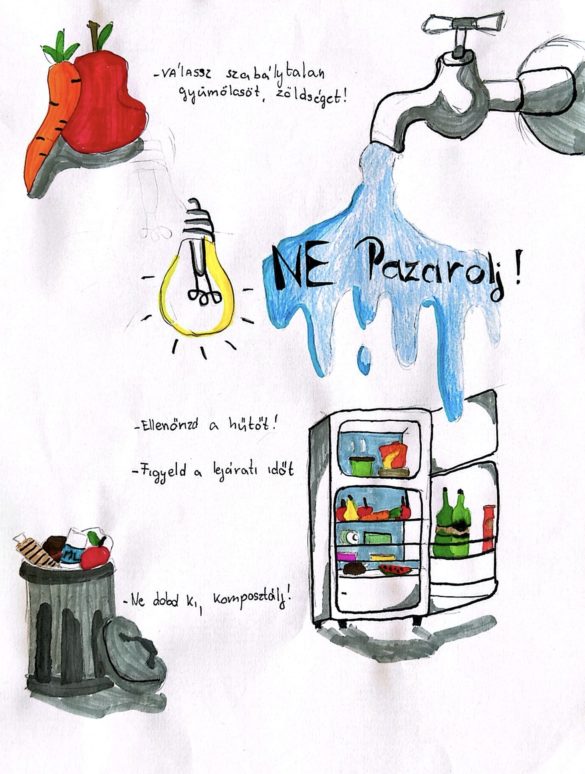 -VÁLASSZ szabálytalan
gyümölcsöt, zöldséget!
NE Pazarolj!
-Ellenőrizd a hűtőt!
-Figyeld a lejárati időt
-Ne dobd ki, komposztálj!